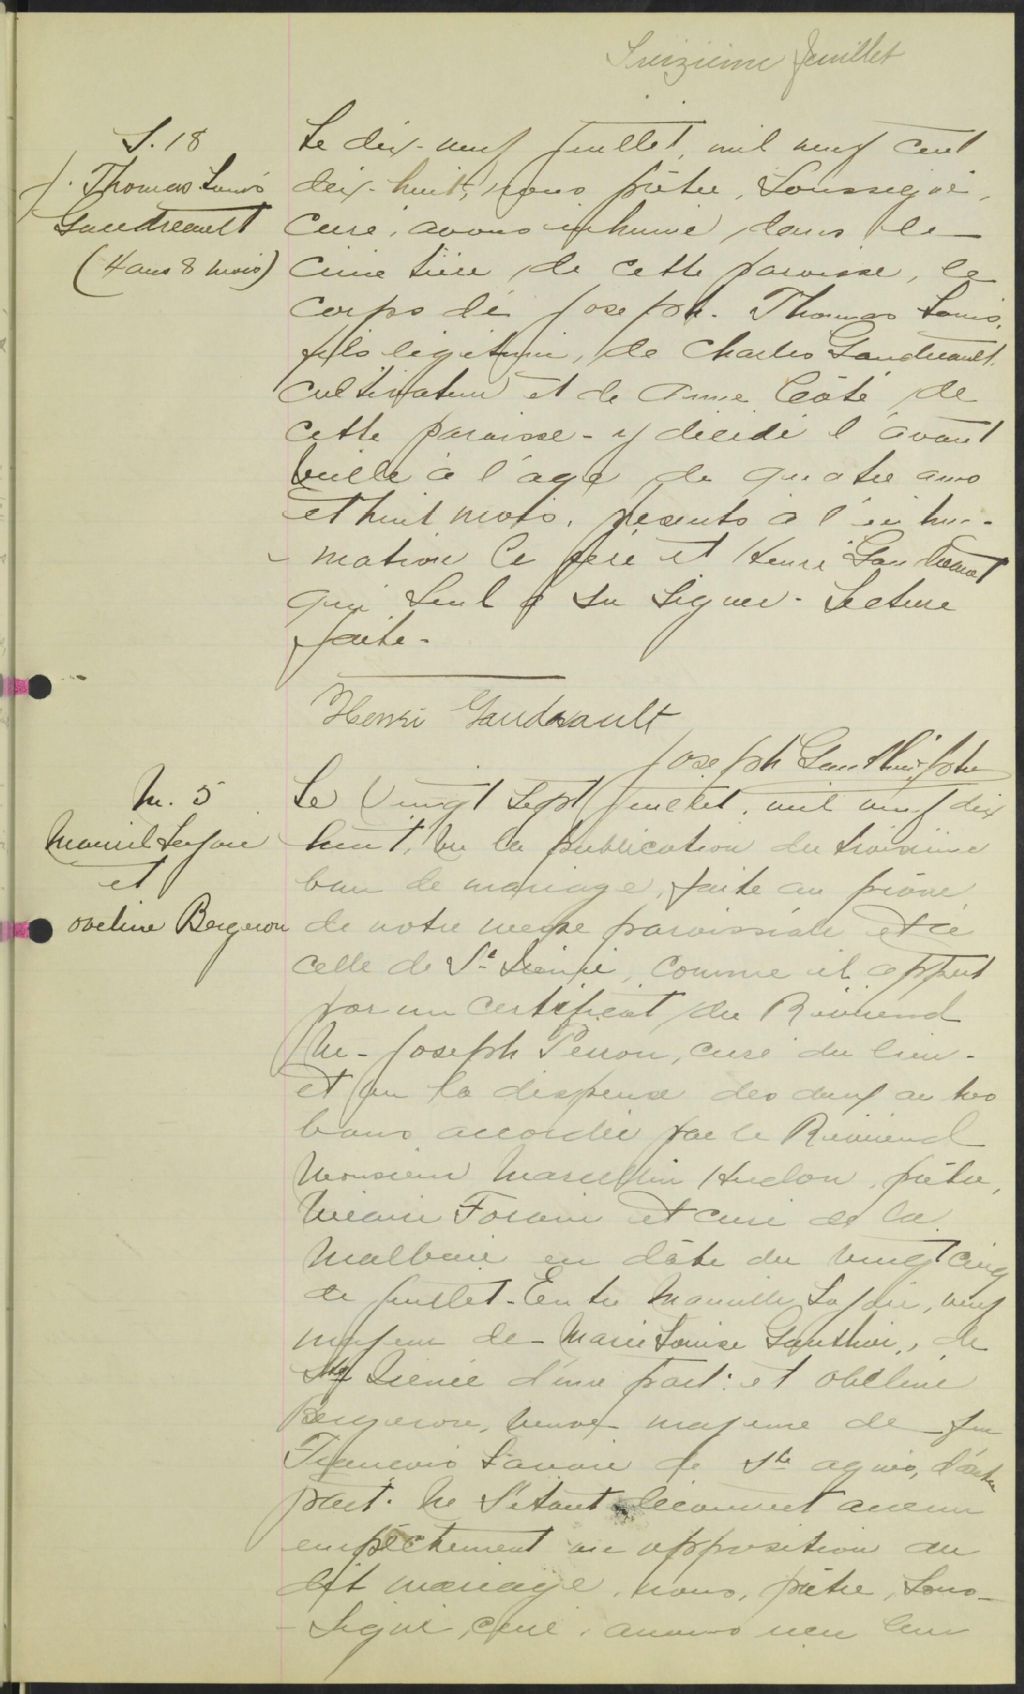 Treizième feuillet
S. 18
J. Thomas Louis
Gaudreault
(4 ans 8 mois)
Le dix-neuf juillet, mil neuf cent
dix-huit, nous prêtre, soussigné,
curé, avons inhumé dans le
cimetière de cette paroisse, le
corps de Joseph. Thomas Louis,
fils légitime, de Charles Gaudreault,
cultivateur et de Anne Côté de
cette paroisse - y décédé l'avant
veille à l'age de quatre ans
et huit mois. présents à l'inhu-
- mation le père et Henri Gaudreault
qui seul a su signer. Lecture
faite.
Henri Gaudreault
Joseph Gauthier ptre
M. 5
et
oveline Bergeron
Le vingt sept juillet, mil neuf dix
huit, vu la publication du troisième
ban de mariage, faite au prône
de notre messe paroissiale et à
celle de St Irénée, comme il appert
par un certificat du Révérend
M. Joseph Perron, curé du lieu -
et vu la dispense des deux autres
bans accordée par le Révérend
Monsieur Marcellin Hudon, prêtre,
Vicaire Forain et curé de la
Malbaie en date du vingt cinq
de juillet. Entre Lajoie, veuf
majeur de Marie Louise Gauthier, de
St Irénée d'une part: et
Bergeron, veuve majeure de feu
François Lavoie de Ste agnès, d'autre
part. Ne s'étant découvert aucun
empêchement ni opposition au
dit mariage, nous, prêtre, sous-
- signé, curé, avons reçu leur